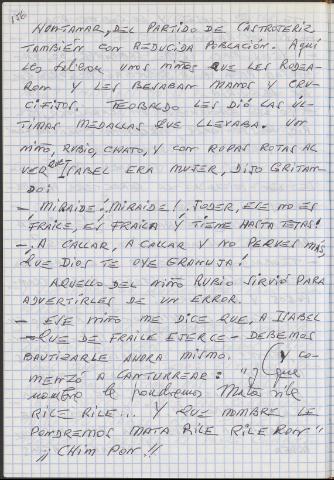 156
HONTANAR, DEL PARTIDO DE CASTROTERIZ
TAMBIÉN CON REDUCIDA POBLACIÓN. AQUÍ
LES SALIERON UNOS NIÑOS QUE LES RODEA-
RON Y LES BESABAN MANOS Y CRU-
CIFIJOS. TEOBALDO LES DIÓ LAS ÚL-
TIMAS MEDALLAS QUE LLEVABA. UN
NIÑO, RUBIO, CHATO, Y CON ROPAS ROTAS AL
VER QUE ISABEL ERA MUJER, DIJO GRITAN-
DO:
- ¡MIRAIDE!, ¡MIRAIDE! ¡JODER, ESE NO ES
FRAILE, ES FRAILA Y TIENE HASTA TETAS!
- ¡A CALLAR, A CALLAR Y NO PEQUES MÁS,
QUE DIOS TE OYE GRANUJA!
AQUELLO DEL NIÑO RUBIO SIRVIÓ PARA
ADVERTIRLES DE UN ERROR.
- ESE NIÑO ME DICE QUE, A ISABEL
-QUE DE FRAILE EJERCE- DEBEMOS
BAUTIZARLE AHORA MISMO. (Y CO-
MENZÓ A CANTURREAR: "Y que
nombre le pondremos Mata rile
RILE RILE... Y QUE NOMBRE LE
PONDREMOS MATA RILE RILE RON"
¡¡CHIM PON!!